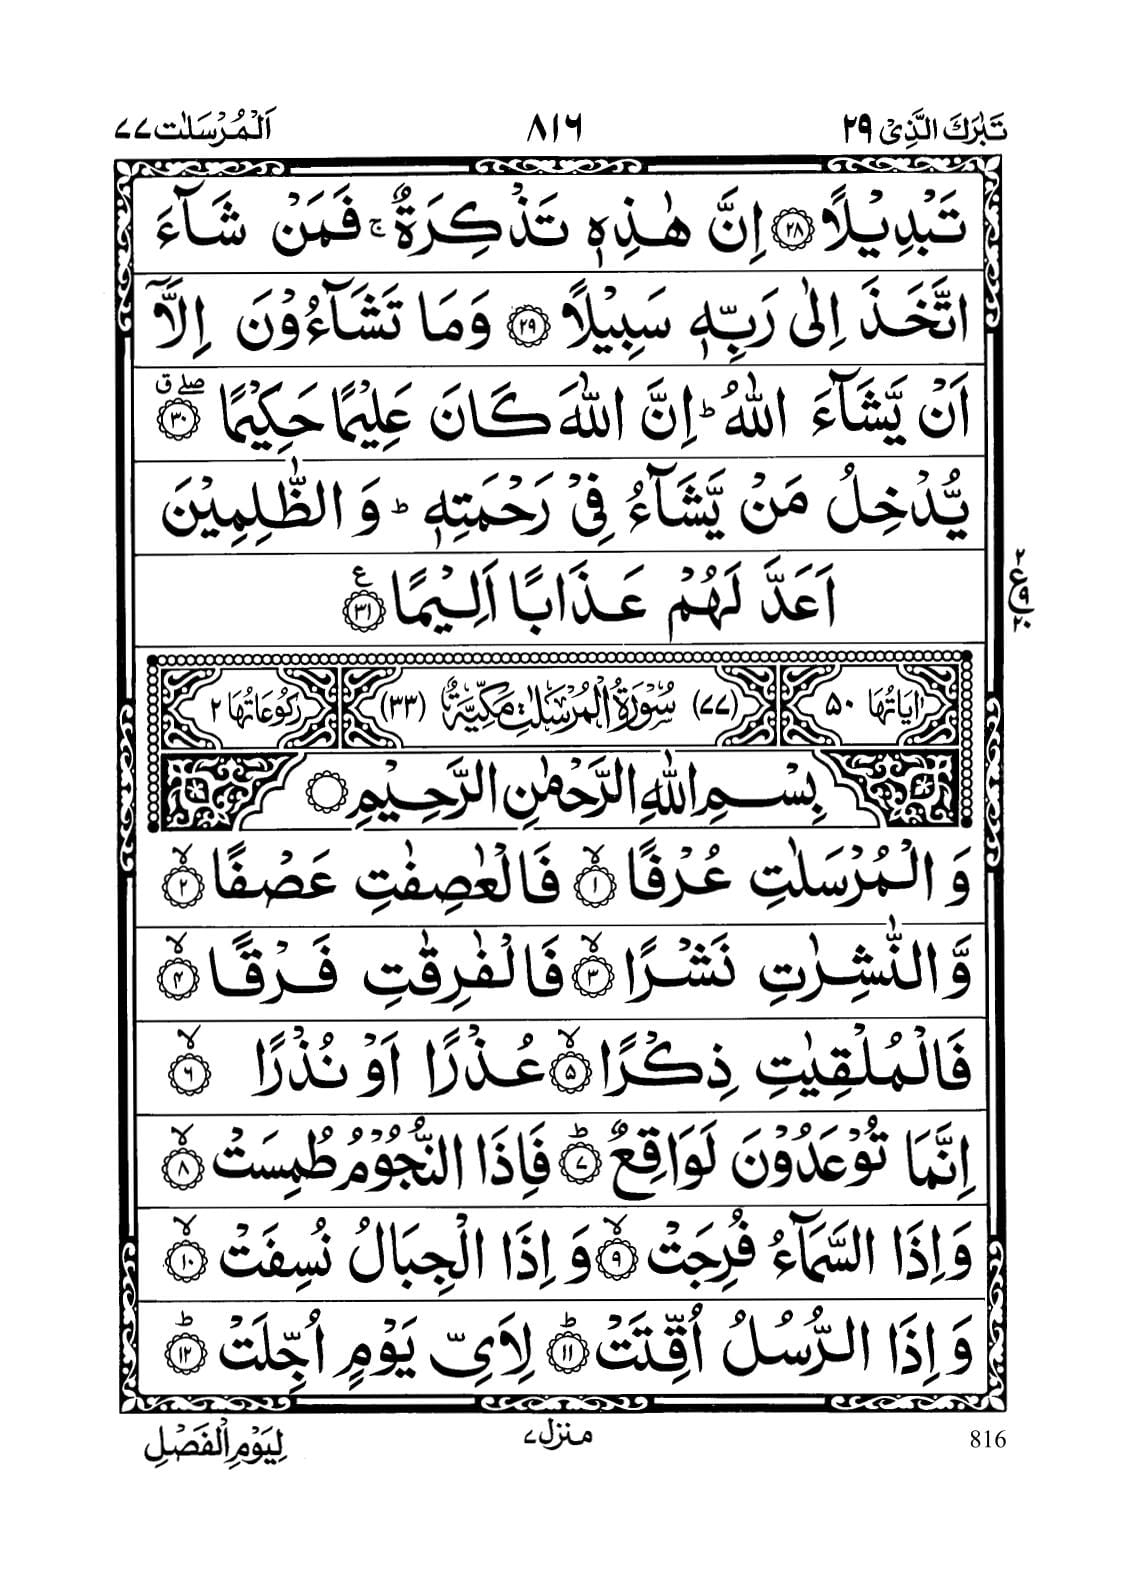 تَبٰرَكَ الَّذِیْ ۲۹ ۸۱۶ اَلْمُرْسَلٰت ۷۷
تَبْدِیْلًا ۲۸ اِنَّ هٰذِهٖ تَذْكِرَةٌ ۚ فَمَنْ شَآءَ
اتَّخَذَ اِلٰی رَبِّهٖ سَبِیْلًا ۲۹ وَمَا تَشَآءُوْنَ اِلَّاۤ
اَنْ یَّشَآءَ اللّٰهُ ؕ اِنَّ اللّٰهَ كَانَ عَلِیْمًا حَكِیْمًا ۳۰ ۖق
یُّدْخِلُ مَنْ یَّشَآءُ فِیْ رَحْمَتِهٖ ؕ وَ الظّٰلِمِیْنَ
اَعَدَّ لَهُمْ عَذَابًا اَلِیْمًا ۳۱ ع
۲ ع ۹ ۲۰
اٰیَاتُهَا ۵۰ (۷۷) سُوْرَةُ الْمُرْسَلٰتِ مَكِّیَّةٌ (۳۳) رُكُوْعَاتُهَا ۲
بِسْمِ اللّٰهِ الرَّحْمٰنِ الرَّحِیْمِ
وَ الْمُرْسَلٰتِ عُرْفًا ۱ ۙ فَالْعٰصِفٰتِ عَصْفًا ۲ ۙ
وَّ النّٰشِرٰتِ نَشْرًا ۳ ۙ فَالْفٰرِقٰتِ فَرْقًا ۴ ۙ
فَالْمُلْقِیٰتِ ذِكْرًا ۵ ۙ عُذْرًا اَوْ نُذْرًا ۶ ۙ
اِنَّمَا تُوْعَدُوْنَ لَوَاقِعٌ ۷ ؕ فَاِذَا النُّجُوْمُ طُمِسَتْ ۸ ۙ
وَ اِذَا السَّمَآءُ فُرِجَتْ ۹ ۙ وَ اِذَا الْجِبَالُ نُسِفَتْ ۱۰ ۙ
وَ اِذَا الرُّسُلُ اُقِّتَتْ ۱۱ ؕ لِاَیِّ یَوْمٍ اُجِّلَتْ ۱۲ ؕ
816 منزل ۷ لِیَوْمِ الْفَصْلِ